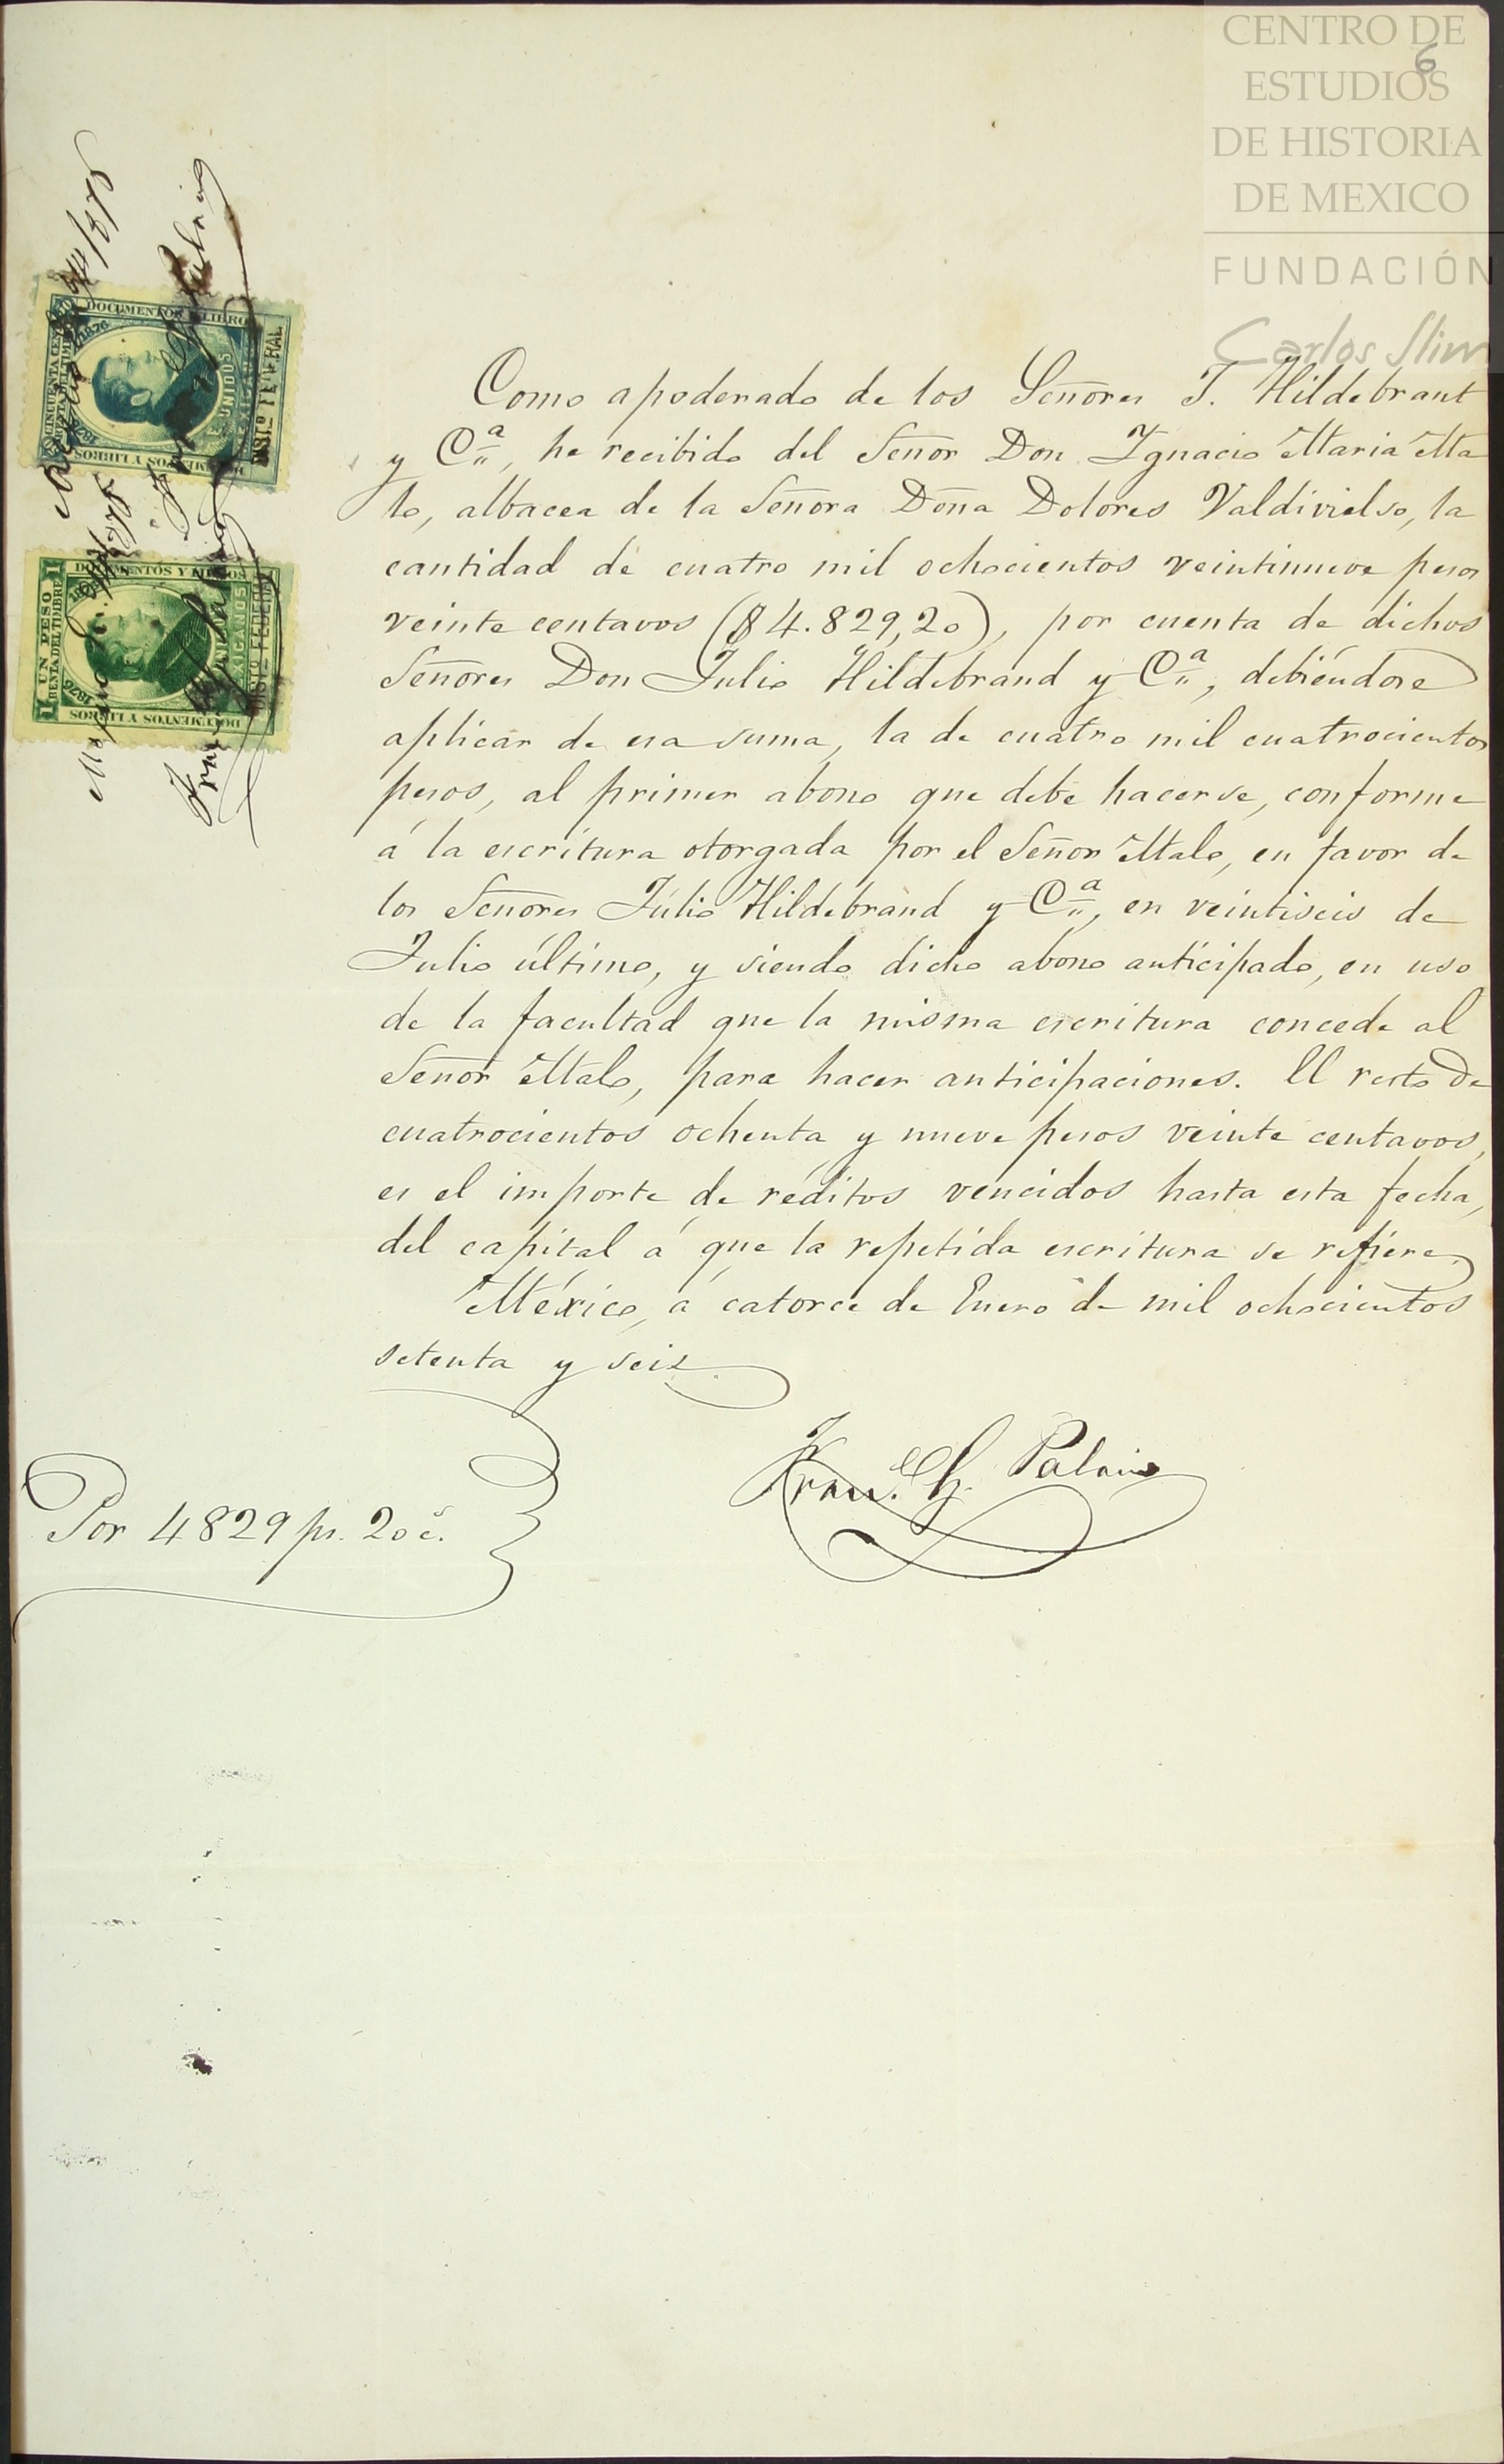 CENTRO DE
ESTUDIOS
DE HISTORIA
DE MEXICO
FUNDACIÓN
Carlos Slim
6
Como apoderado de los Señores J. Hildebrant
y C.ª, he recibido del Señor Don Ygnacio Maria Ma
lo, albacea de la Señora Doña Dolores Valdivielso, la
cantidad de cuatro mil ochocientos veintinueve pesos
veinte centavos ($4.829,20), por cuenta de dichos
Señores Don Julio Hildebrand y C.ª, debiéndose
aplicar de esa suma, la de cuatro mil cuatrocientos
pesos, al primer abono que debe hacerse, conforme
á la escritura otorgada por el Señor Malo, en favor de
los Señores Julio Hildebrand y C.ª, en veintiseis de
Julio último, y siendo dicho abono anticipado, en uso
de la facultad que la misma escritura concede al
Señor Malo, para hacer anticipaciones. El resto de
cuatrocientos ochenta y nueve pesos veinte centavos,
es el importe de réditos vencidos hasta esta fecha,
del capital á que la repetida escritura se refiere.
México, á catorce de Enero de mil ochocientos
setenta y seis.
Fran.co G. Palacio
Por 4829 ps. 20 c.s
DOCUMENTOS Y LIBROS
CINCUENTA CENT
RENTA DEL TIMBRE
1876
E. UNIDOS
MEXICANOS
DISTO FEDERAL
DOCUMENTOS Y LIBROS
1 UN PESO 1
RENTA DEL TIMBRE
1876
MEXICANOS
DISTO FEDERAL
DOCUMENTOS Y LIBROS